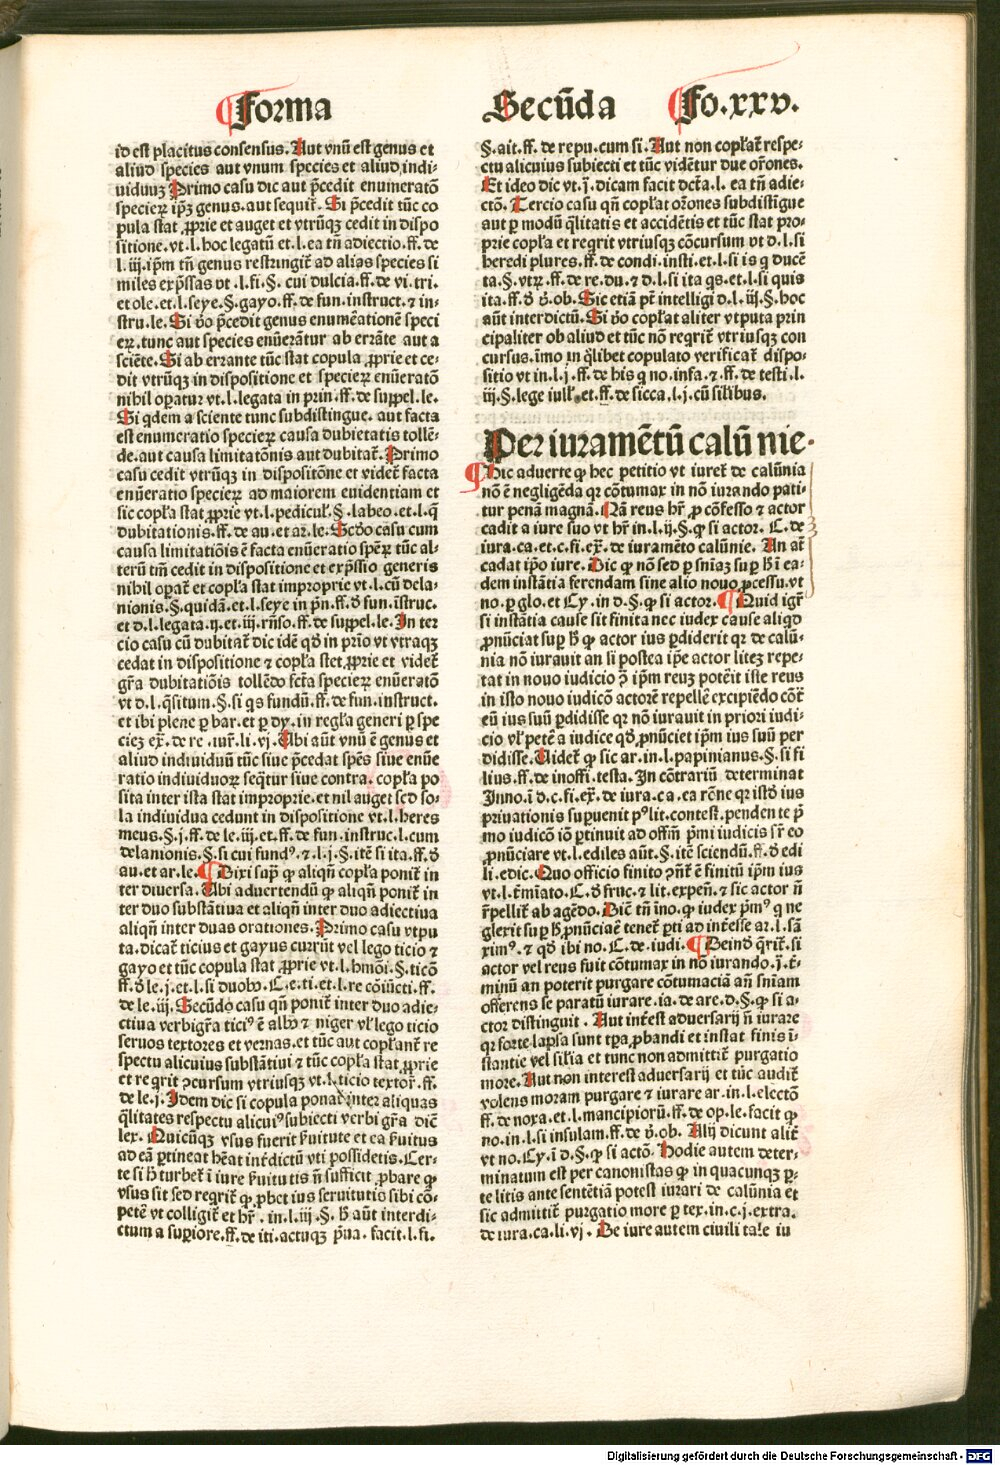 Forma
Secūda Fo.xxv.
id est placitus consensus. Aut vnū est genus et
aliud species aut vnum species et aliud indi-
uiduuz Primo casu dic aut p̄cedit enumeratō
specieꝝ ip̄z genus. aut sequiť. Si p̄cedit tūc co
pula stat ꝓprie et auget et vtrūqꝫ cedit in dispo
sitione. vt .l. hoc legatū et .l. ea tn̄ adiectio. ff. de
l. iij. ip̄m tn̄ genus restringiť ad alias species si
miles exp̄ssas vt .l. fi. §. cui dulcia. ff. de vi. tri.
et ole. et .l. seye. §. gayo. ff. de fun. instruct. ⁊ in-
stru. le. Si v̄o p̄cedit genus enumēationē speci
eꝝ. tunc aut species enūerātur ab errāte aut a
sciēte. Si ab errante tūc stat copula ꝓprie et ce-
dit vtrūqꝫ in dispositione et specieꝝ enūeratō
nihil oꝑatur vt .l. legata in prin. ff. de suppel. le.
Si qdem a sciente tunc subdistingue. aut facta
est enumeratio specieꝝ causa dubietatis tollē-
de. aut causa limitatōnis aut dubitať. Primo
casu cedit vtrūqꝫ in dispositōne et videť facta
enūeratio specieꝝ ad maiorem euidentiam et
sic copl̄a stat ꝓprie vt .l. pediculꝭ. §. labeo. et .l. q̄
dubitationis. ff. de au. et ar. le. Scd̄o casu cum
causa limitatiōis ē facta enūeratio spēꝝ tūc al-
terū tm̄ cedit in dispositione et exp̄ssio generis
nihil oꝑať et copl̄a stat improprie vt .l. cū dela-
nionis. §. quidā. et .l. seye in p̄n. ff. ď fun. īstruc.
et d. l. legata. ij. et .iij. rn̄so. ff. de suppel. le. In ter
cio casu cū dubitať dic idē qď in prīo vt vtraqꝫ
cedat in dispositione ⁊ copl̄a stet ꝓprie et videť
gr̄a dubitatiōis tollēdo fcťa specieꝝ enūeratō
vt d. l. q̄situm. §. si qs fundū. ff. de fun. instruct.
et ibi plene ꝑ bar. et ꝑ dy. in regl̄a generi ꝑ spe
ciez ex̄. de re. iur̄. li. vj. Ubi aūt vnū ē genus et
aliud indiuiduū tūc siue p̄cedat spēs siue enūe
ratio indiuiduoꝝ seq̄tur siue contra. copl̄a po
sita inter ista stat improprie. et nil auget sed so-
la indiuidua cedunt in dispositione vt .l. heres
meus. §. j. ff. de le. iij. et. ff. de fun. instruc. l. cum
delanionis. §. si cui fundꝰ. ⁊ .l. j. §. itē si ita. ff. ď
au. et ar. le. Dixi supꝭ qꝭ aliqn̄ copl̄a poniť in
ter diuersa. Ubi aduertendū qꝭ aliqn̄ poniť in
ter duo substātiua et aliqn̄ inter duo adiectiua
aliqn̄ inter duas orationes. Primo casu vtpu
ta. dicať ticius et gayus currūt vel lego ticio ⁊
gayo et tūc copula stat ꝓprie vt .l. hmōi. §. ticō
ff. ď le. j. et .l. si duobꝰ. C. e. ti. et .l. re cōiūcti. ff.
de le. iij. Secūdo casu qn̄ poniť inter duo adie-
ctiua verbigr̄a ticiꝰ ē albꝰ ⁊ niger vl̄ lego ticio
seruos textores et vernas. et tūc aut copl̄anť re
spectu alicuius substātiui ⁊ tūc copl̄a stat ꝓprie
et reqrit ꝯcursum vtriusqꝫ vt .l. ticio textor̄. ff.
de le. j. Idem dic si copula ponať inter aliquas
q̄litates respectu alicuiꝰ subiecti verbi gr̄a dicē
lex. Quicūqꝫ vsus fuerit ẜuitute et ea ẜuitus
ad eā ꝑtineat hēat inťdictū vti possidetis. Cer-
te si h̄ turbeť ī iure ẜuitutis n̄ sufficit ꝓbare qꝭ
vsus sit sed reqriť qꝭ ꝓbet ius seruitutis sibi cō-
petē vt colligiť et hr̄. in .l. iij. §. h̄ aūt interdi-
ctum a suꝑiore. ff. de iti. actuqꝫ p̄ua. facit .l. fi.
§. ait. ff. de repu. cum si. Aut non copl̄ať respe-
ctu alicuius subiecti et tūc vidētur due or̄ones.
Et ideo dic vt .j̄. dicam facit dcťa .l. ea tn̄ adie-
ctō. Tercio casu qn̄ copl̄at or̄ones subdistīgue
aut ꝑ modū q̄litatis et accidētis et tūc stat pro-
prie copl̄a et reqrit vtriusqꝫ cōcursum vt d. l. si
heredi plures. ff. de condi. insti. et .l. si is q ducē
ta. §. vtꝝ. ff. de re. du. ⁊ d. l. si ita qs. et .l. si quis
ita. ff. ď v̄. ob. Sic etiā pt̄ intelligi d. l. iij. §. hoc
aūt interdictū. Si v̄o copl̄at aliter vtputa prin
cipaliter ob aliud et tūc nō reqriť vtriusqꝫ con
cursus. īmo in q̄libet copulato verificať dispo-
sitio vt in .l. j. ff. de his q no. infa. ⁊ .ff. de testi. l.
iij. §. lege iull̄. et. ff. de sicca. l. j. cū silibus.
Per iuramētū calūnie.
Hic aduerte qꝭ hec petitio vt iureť de calūnia
nō ē negligēda qr cōtumax in nō iurando pati-
tur penā magnā. Nā reus hr̄ ꝓ cōfesso ⁊ actor
cadit a iure suo vt hr̄ in .l. ij. §. qꝭ si actor. C. de
iura. ca. et. c. fi. ex̄. de iuramēto calūnie. An at̄
cadat ip̄o iure. Dic qꝭ nō sed ꝑ sn̄iaz suꝑ h̄ ī ea-
dem instātia ferendam sine alio nouo ꝓcessu. vt
no. ꝑ glo. et Cy. in d. §. qꝭ si actor. Quid igr̄
si instātia cause sit finita nec iudex cause aliqd
ꝓnūciat suꝑ h̄ qꝭ actor ius ꝑdiderit qr de calū-
nia nō iurauit an si postea ip̄e actor litez repe-
tat in nouo iudicio ꝯ ip̄m reuz potēit iste reus
in isto nouo iudicō actorē repellē excipiēdo cōt̄
eū ius suū ꝑdidisse qr nō iurauit in priori iudi-
cio vl̄ petē a iudice qď ꝓnūciet ip̄m ius suū per
didisse. Videť qꝭ sic ar. in .l. papinianus. §. si fi
lius. ff. de inoffi. testa. In cōtrariū determinat
Inno. ī d. c. fi. ex̄. de iura. ca. ea rōne qr istď ius
priuationis suꝑuenit pꝰ lit. contest. pendente p̄
mo iudicō iō ꝑtinuit ad offm̄ p̄mi iudicis sr̄ eo
ꝓnūciare vt .l. ediles aūt. §. itē sciendū. ff. ď edi
li. edic. Quo officio finito ꝯn̄t̄ ē finitū ip̄m ius
vt .l. t̄mīato. C. ď fruc. ⁊ lit. expen̄. ⁊ sic actor n̄
r̄pelliť ab agēdo. Dicē tn̄ īno. qꝭ iudex p̄mꝰ q ne
glexit suꝑ h̄ ꝓnūciaē teneť ꝑti ad inťesse ar. l. sā
ximꝰ. ⁊ qď ibi no. C. de. iudi. Deinď q̄riť. si
actor vel reus fuit cōtumax in nō iurando. ī. ť-
minū an poterit purgare cōtumaciā añ sn̄iam
offerens se paratū iurare. ia. de are. d. §. qꝭ si a-
ctor distinguit. Aut inťest aduersarij n̄ iurare
qr forte lapsa sunt tp̄a ꝓbandi et instat finis ī-
stantie vel silīa et tunc non admittiť purgatio
more. Aut non interest aduersarij et tūc audiť
volens moram purgare ⁊ iurare ar. in .l. electō
ff. de noxa. et .l. mancipiorū. ff. de op. le. facit qꝭ
no. in .l. si insulam. ff. de v̄. ob. Alij dicunt aliť
vt no. Cy. ī d. §. qꝭ si actō. Hodie autem deter-
minatum est per canonistas qꝭ in quacunqꝫ ꝑ-
te litis ante sentētiā potest iurari de calūnia et
sic admittiť purgatio more ꝑ tex. in. c. j. extra.
de iura. ca. li. vj. De iure autem ciuili tale iu
Digitalisierung gefördert durch die Deutsche Forschungsgemeinschaft - DFG